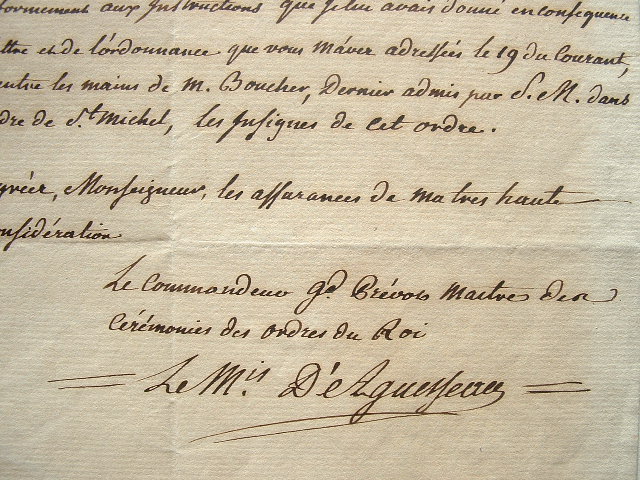 formement aux Instructions que je lui avais donné en conséquence
ttre et de l'ordonnance que vous m'aver adressées le 19 du Courant,
entre les mains de M. Boucher, Dernier admis par S. M. dans
dre de S.t Michel, les Insignes de cet ordre.
gréer, Monseigneur, les assurances de ma tres haute
onsidération
Le Commandeur g.d Prévôt Maitre des
Cérémonies des ordres du Roi
Le M.is D'Aguesseau